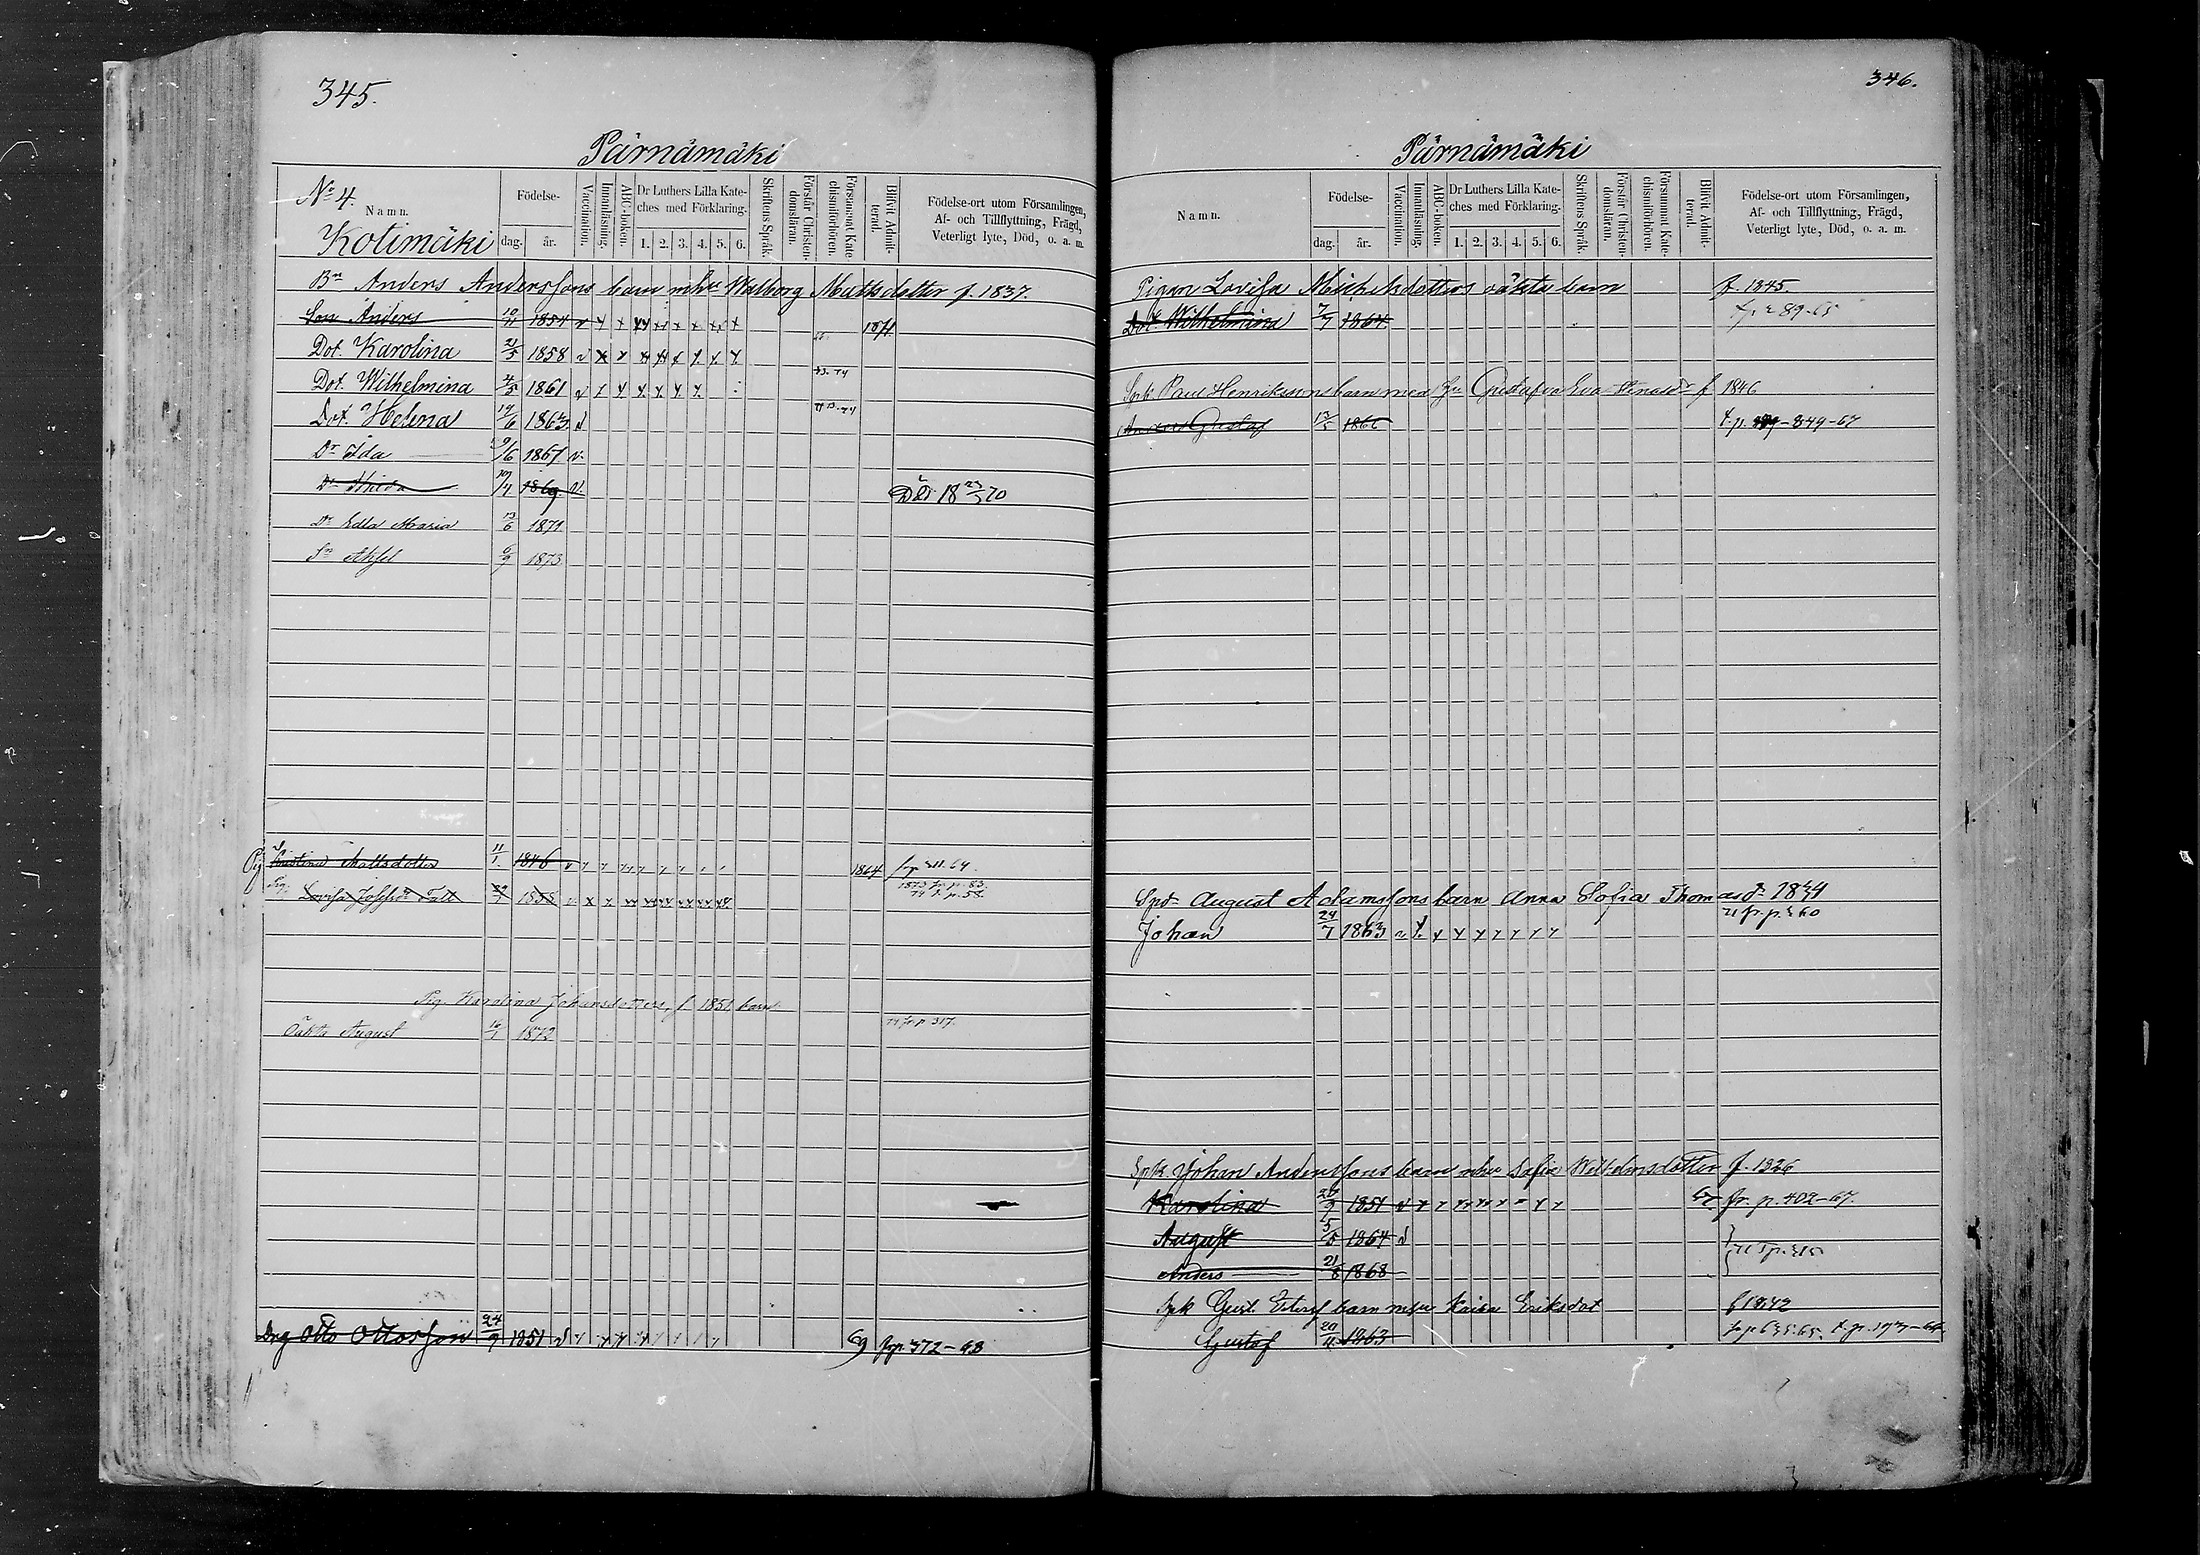 345.
Pärnämäki
No 4.
Namn.
Kotimäki
Födelse-
dag. år.
Vaccination.
Innanläsning.
ABC-boken.
Dr Luthers Lilla Kate-
ches med Förklaring.
1. 2. 3. 4. 5. 6.
Skriftens Språk.
Förstår Christen-
domsläran.
Försummat Kate-
chismiförhören.
Blifvit Admit-
terad.
Födelse-ort utom Församlingen,
Af- och Tillflyttning, Frägd,
Veterligt lyte, Död, o. a. m.
Bn Anders Anderssons barn mhu Walborg Mattsdotter f. 1837.
Son Anders 10/11 1854 v x x xx x x x x x 1871
Dot. Karolina 21/5 1858 v x x x x x x x x
Dot. Wilhelmina 4/5 1861 v x x x x x x 73. 74
Dot. Helena 19/6 1863 v 74
Dr Ida 29/6 1867 v.
Dr Hilda 1869. v. Död 18 23/5 70
Dr Edla Maria 13/6 1871
Sn Axel 6/9 1873
Pig Kristina Mattsdotter 11/1. 1846 v 1864 fr p 311. 69.
Pig. Lovisa Josefsdr 1858 v. x x xx xx xx xx xx 1873 fr. p. 83.
74 t. p. 58.
Pig. Karolina Johansdotters, f. 1851, barn
Oäkta August 16/1 1872 74 fr. p. 317.
Drg Otto Ottosson 24/9 1851 v 69 frp. 372-68
346.
Pärnämäki
Namn.
Födelse-
dag. år.
Vaccination.
Innanläsning.
ABC-boken.
Dr Luthers Lilla Kate-
ches med Förklaring.
1. 2. 3. 4. 5. 6.
Skriftens Språk.
Förstår Christen-
domsläran.
Försummat Kate-
chismiförhören.
Blifvit Admit-
terad.
Födelse-ort utom Församlingen,
Af- och Tillflyttning, Frägd,
Veterligt lyte, Död, o. a. m.
Pigan Lovisa Michelsdotters oäkta barn f. 1845
Dot. Wilhelmina 7/7 1864 t p 289-65
Spk Paul Henrikssons barn med hu Gustafva Eva f 1846
Anders Gustaf 1866 t. p. 849-67
Spd August Adamssons barn Anna Sofia Thomasdr 1834
Johan 24/7 1863 v x. x x x x x x x 71 fr. p. 360
Spk Johan Anderssons barn mhu Sofia Wilhelmsdotter f. 1826
Karolina 29/9 1851 v 67 fr. p. 402-67.
August 5/5 1864 v
Anders 21/8 1868
Spk Gust. barn mhu Kaisa Eriksdot f 1842
Gustaf 20/11 1863 fr p 635. 65. t. p. 1973-66.